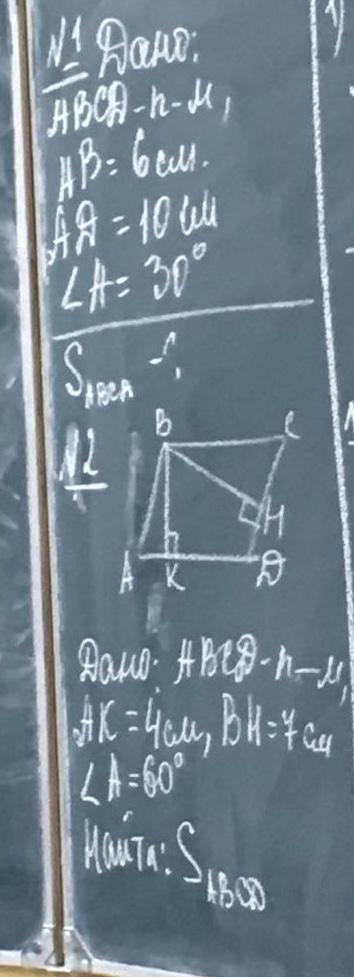 №1 Дано:
ABCD-п-м,
AB = 6 см.
AD = 10 см
∠A = 30°
S ABCD -?
№2
B C
H
A K D
Дано: ABCD-п-м,
AK = 4 см, BH = 7 см
∠A = 60°
Найти: S ABCD